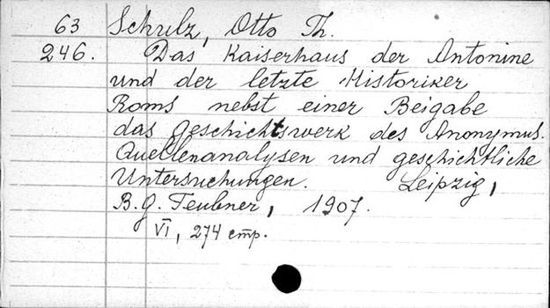 63 Schulz, Otto Th.
246. Das Kaiserhaus der Antonine
und der letzte Historiker
Roms nebst einer Beigabe
das Geschichtswerk des Anonymus.
Quellenanalysen und geschichtliche
Untersuchungen. Leipzig,
B. G. Teubner, 1907.
VI, 274 стр.